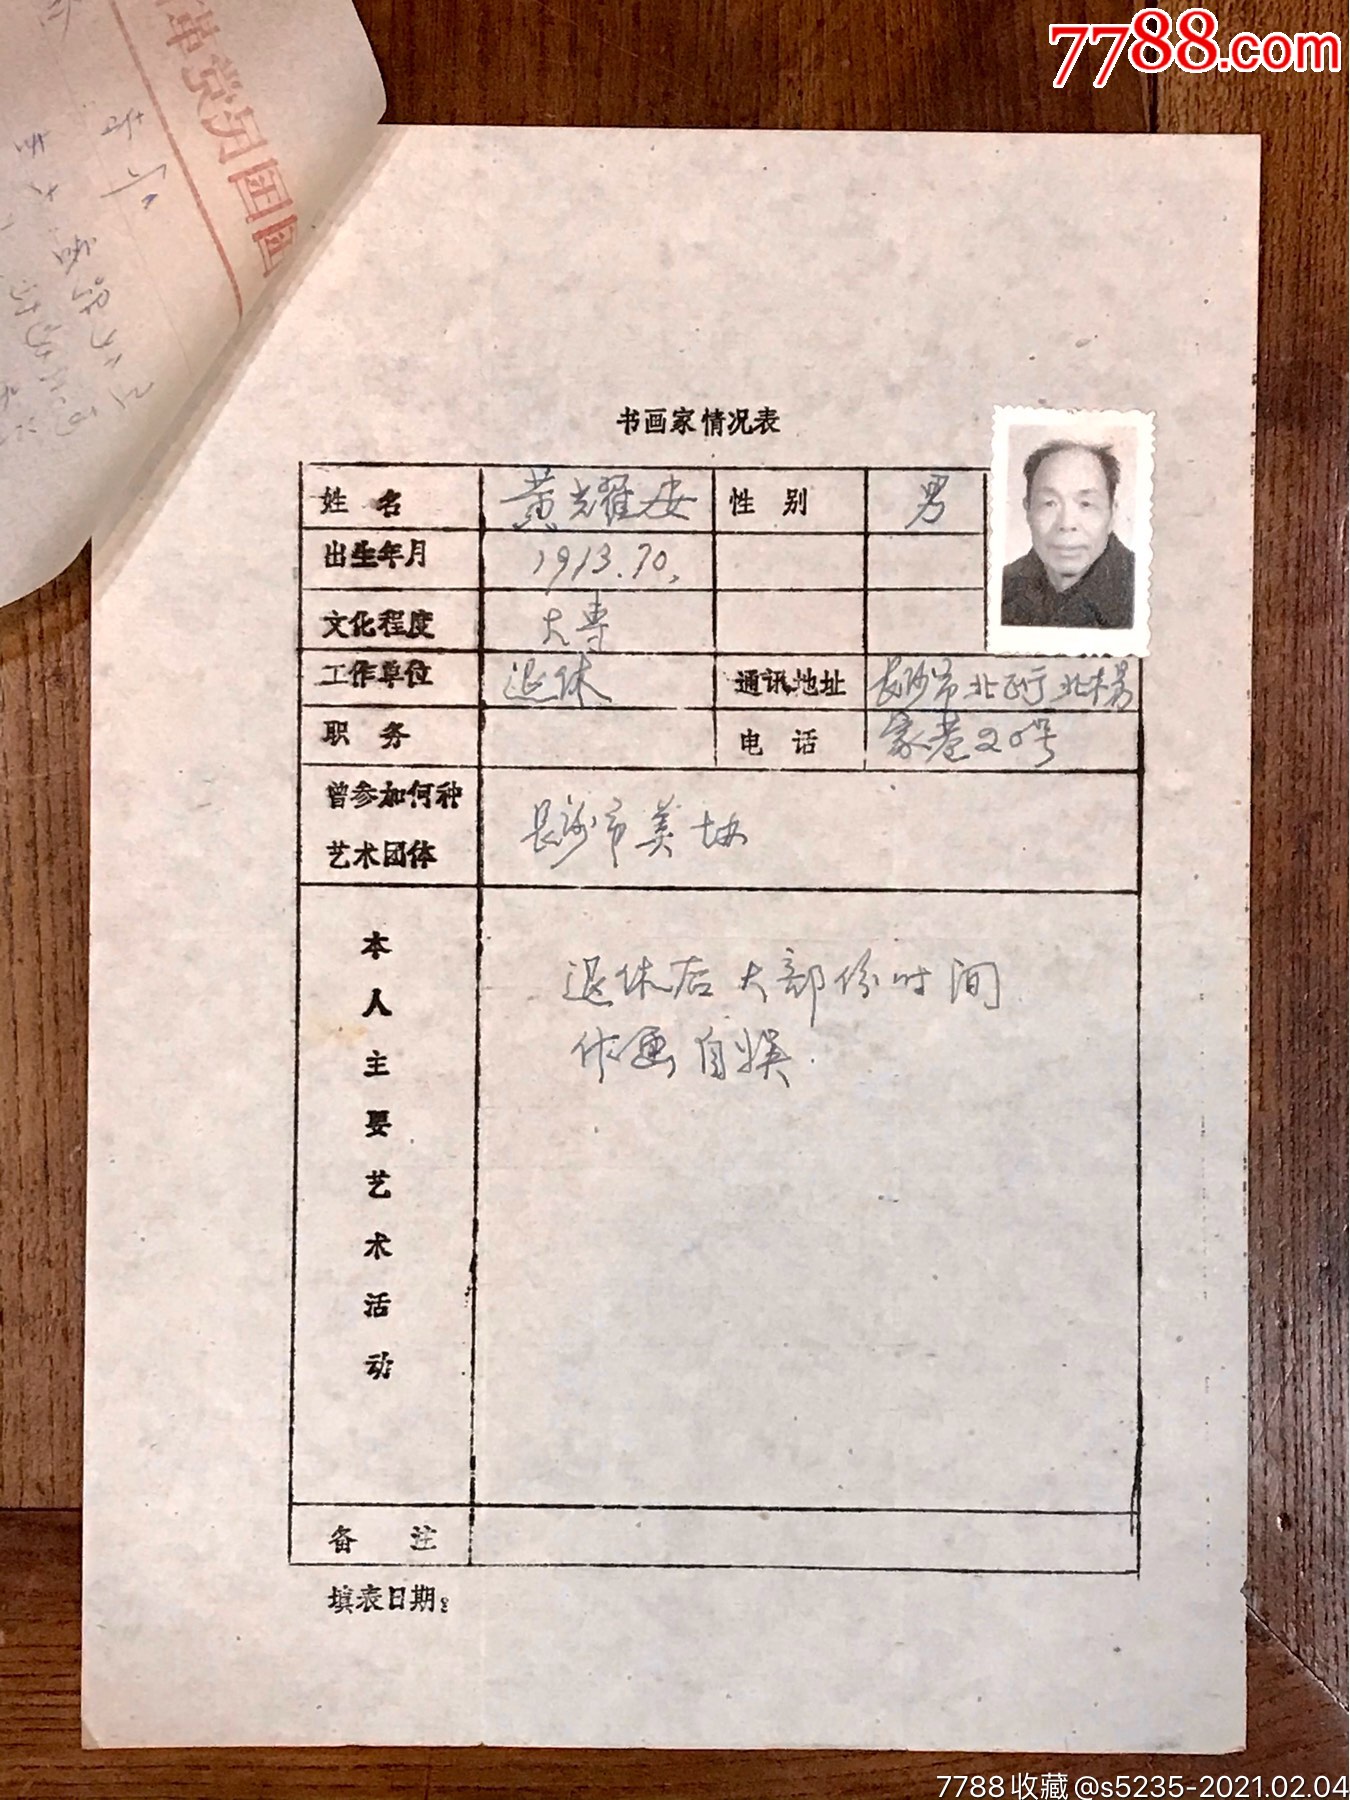 7788.com
革党济国团
书画家情况表
姓 名 黄耀安 性 别 男
出生年月 1913.10.
文化程度 大专
工作单位 退休 通讯地址 长沙市北正街北木易
职 务 电 话 家巷20号
曾参加何种 长沙市美协
艺术团体
本人主要艺术活动
退休后大部份时间
作画自娱.
备 注
填表日期:
7788收藏@s5235-2021.02.04